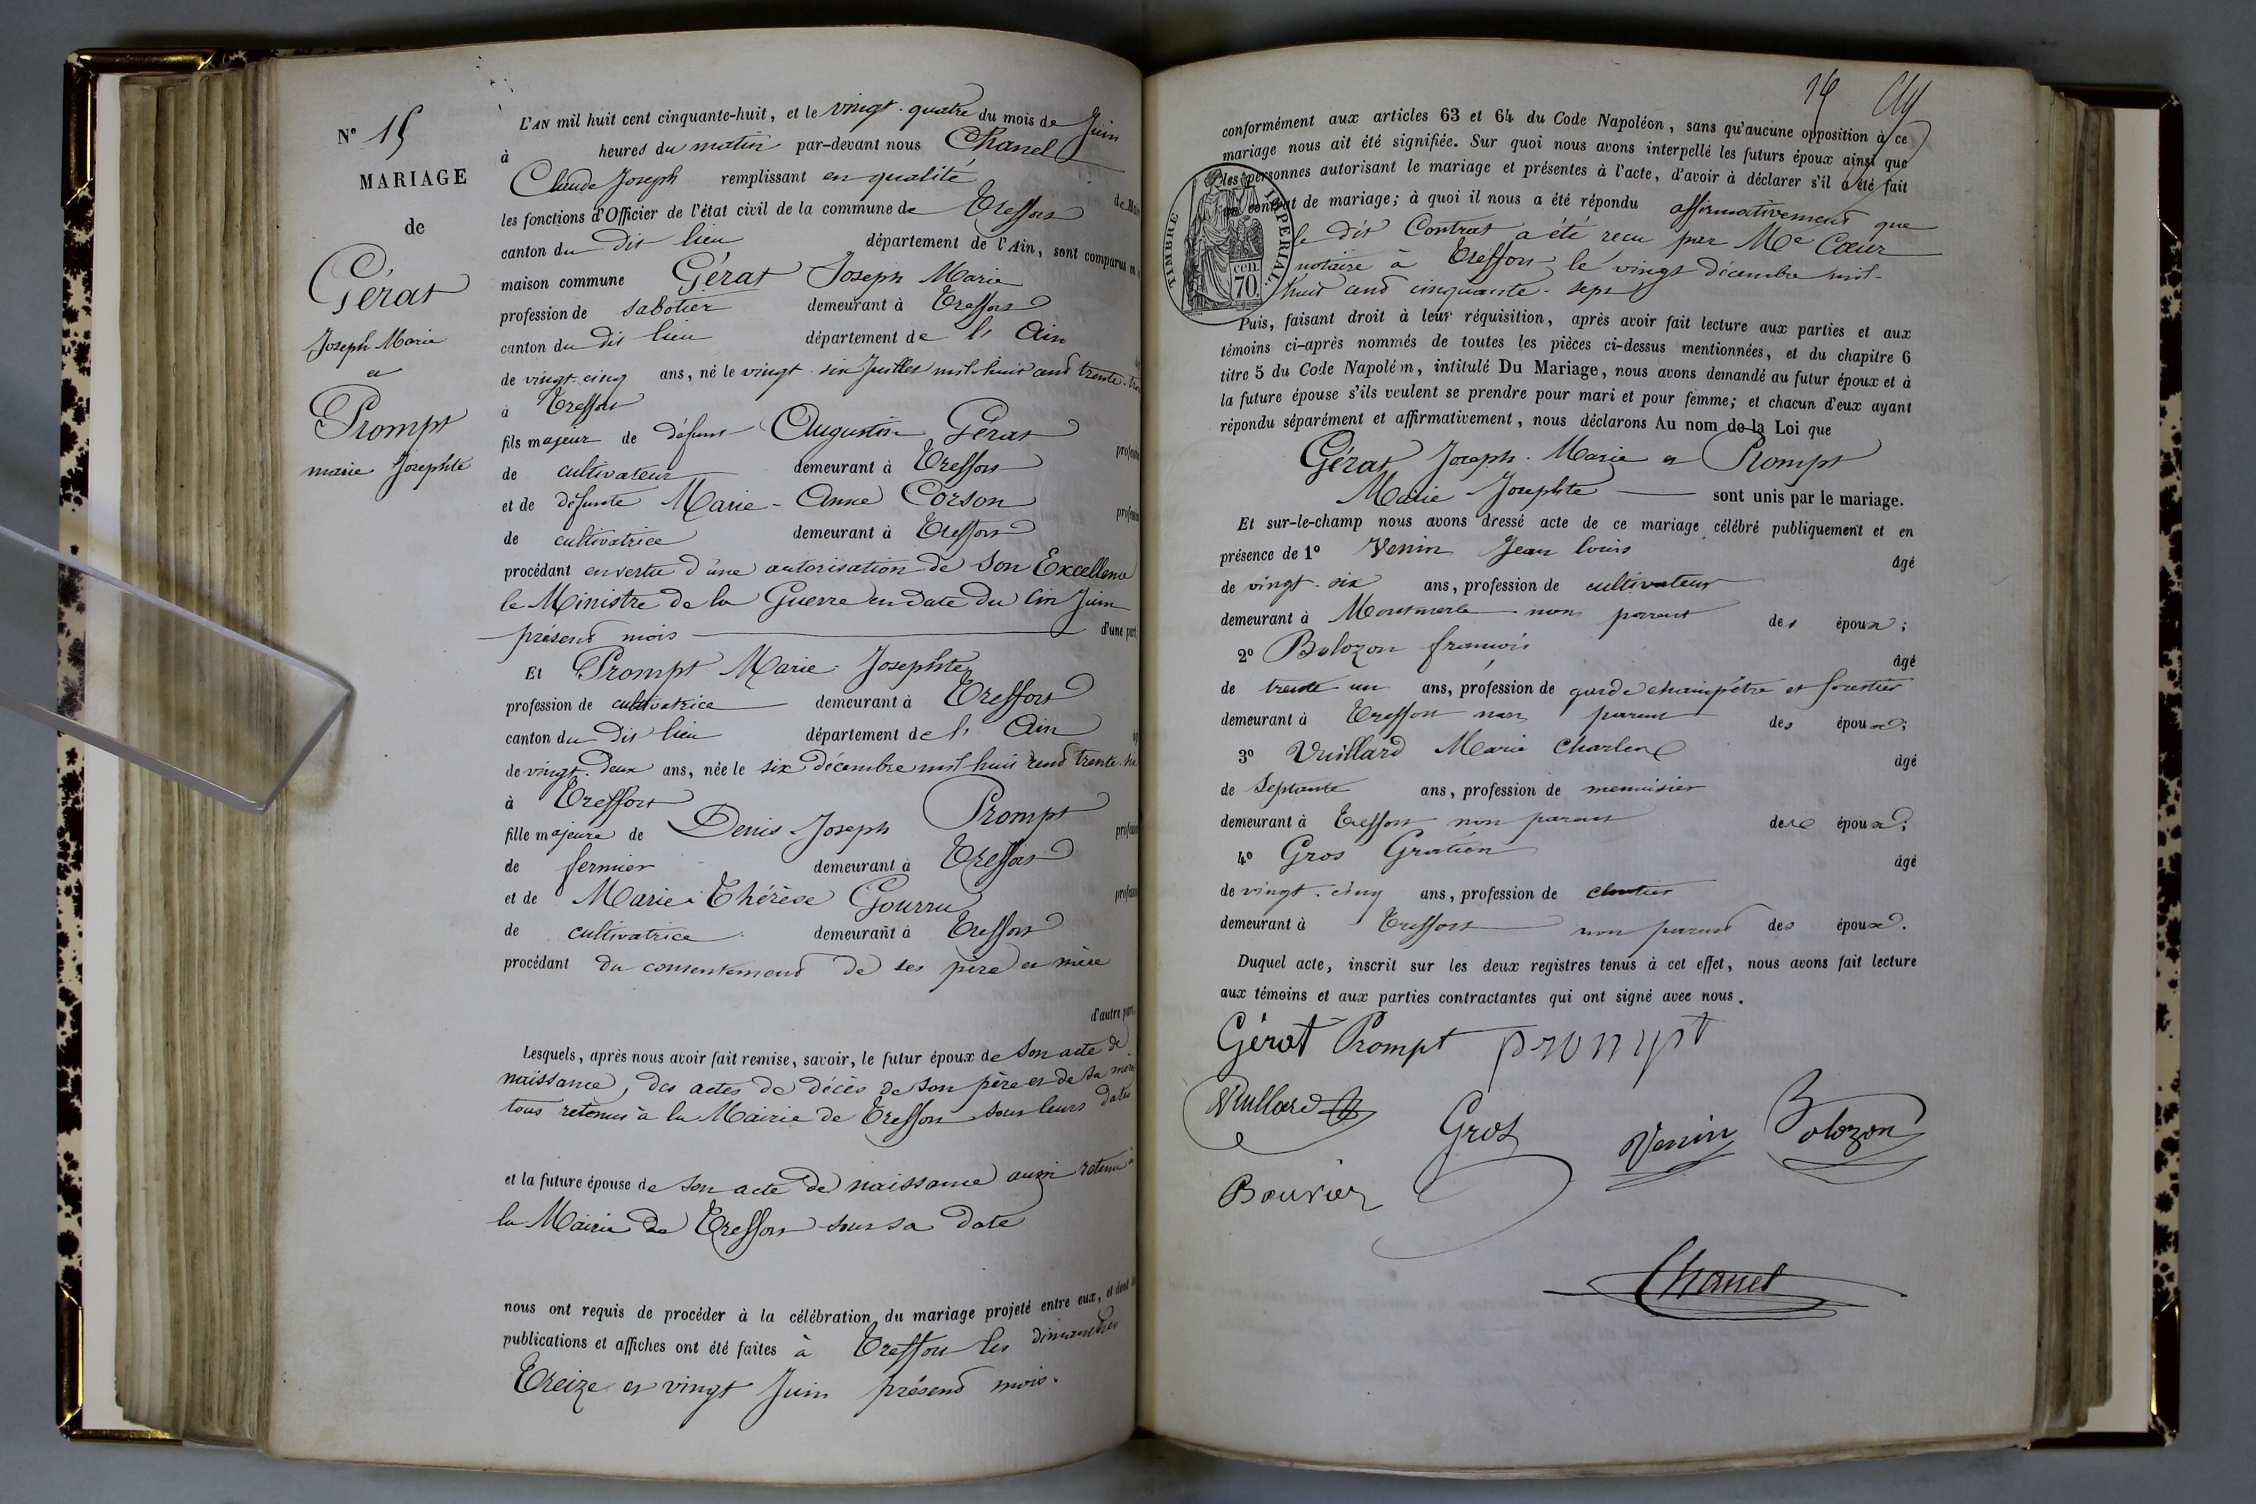 N° 15
MARIAGE
de
Gérat
Joseph Marie
et
Prompt
marie Josephte
L'AN mil huit cent cinquante-huit, et le vingt-quatre du mois de Juin
à heures du matin par-devant nous Chanel
Claude Joseph remplissant en qualité de Maire
les fonctions d'Officier de l'état civil de la commune de Treffort
canton du dit lieu département de l'Ain, sont comparus en
maison commune Gérat Joseph Marie
profession de sabotier demeurant à Treffort
canton du dit lieu département de l'Ain
de vingt-cinq ans, né le vingt-six Juillet mil huit cent trente-
à Treffort
fils majeur de défunt Augustin Gérat
de cultivateur demeurant à Treffort
et de défunte Marie-Anne Corson
de cultivatrice demeurant à Treffort
procédant en vertu d'une autorisation de Son Excellence
le Ministre de la Guerre en date du Cinq Juin
présent mois d'une part
Et Prompt Marie Josephte
profession de cultivatrice demeurant à Treffort
canton du dit lieu département de l'Ain
de vingt-deux ans, née le six décembre mil huit cent trente-
à Treffort
fille majeure de Denis Joseph Prompt
de fermier demeurant à Treffort
et de Marie-Thérèse Gourru
de cultivatrice demeurant à Treffort
procédant du consentement de ses père et mère
d'autre part.
Lesquels, après nous avoir fait remise, savoir, le futur époux de son acte de
naissance, des actes de décès de son père et de sa mère
tous retenus à la Mairie de Treffort sous leurs dates
et la future épouse de son acte de naissance aussi retenu à
la Mairie de Treffort sous sa date
nous ont requis de procéder à la célébration du mariage projeté entre eux, et dont les
publications et affiches ont été faites à Treffort les dimanches
Treize et vingt Juin présent mois.
14
conformément aux articles 63 et 64 du Code Napoléon, sans qu'aucune opposition à ce
mariage nous ait été signifiée. Sur quoi nous avons interpellé les futurs époux ainsi que
les personnes autorisant le mariage et présentes à l'acte, d'avoir à déclarer s'il a été fait
un contrat de mariage; à quoi il nous a été répondu affirmativement que
le dit Contrat a été reçu par Me Cœur
notaire à Treffort le vingt décembre mil-
huit cent cinquante-sept
TIMBRE IMPERIAL.
cen.
70.
Puis, faisant droit à leur réquisition, après avoir fait lecture aux parties et aux
témoins ci-après nommés de toutes les pièces ci-dessus mentionnées, et du chapitre 6
titre 5 du Code Napoléon, intitulé Du Mariage, nous avons demandé au futur époux et à
la future épouse s'ils veulent se prendre pour mari et pour femme; et chacun d'eux ayant
répondu séparément et affirmativement, nous déclarons Au nom de la Loi que
Gérat Joseph-Marie et Prompt
Marie Josephte sont unis par le mariage.
Et sur-le-champ nous avons dressé acte de ce mariage célébré publiquement et en
présence de 1° Venin Jean louis âgé
de vingt-six ans, profession de cultivateur
demeurant à Montmerle non parent des époux;
2° Bolozon françois âgé
de trente un ans, profession de garde champêtre et forestier
demeurant à Treffort non parent des époux;
3° Vuillard Marie Charles âgé
de Septante ans, profession de menuisier
demeurant à Treffort non parent des époux;
4° Gros Gratien âgé
de vingt-cinq ans, profession de cloutier
demeurant à Treffort non parent des époux.
Duquel acte, inscrit sur les deux registres tenus à cet effet, nous avons fait lecture
aux témoins et aux parties contractantes qui ont signé avec nous.
Gérat Prompt prompt
Vuillard Gros Venin Bolozon
Bouvier
Chanel